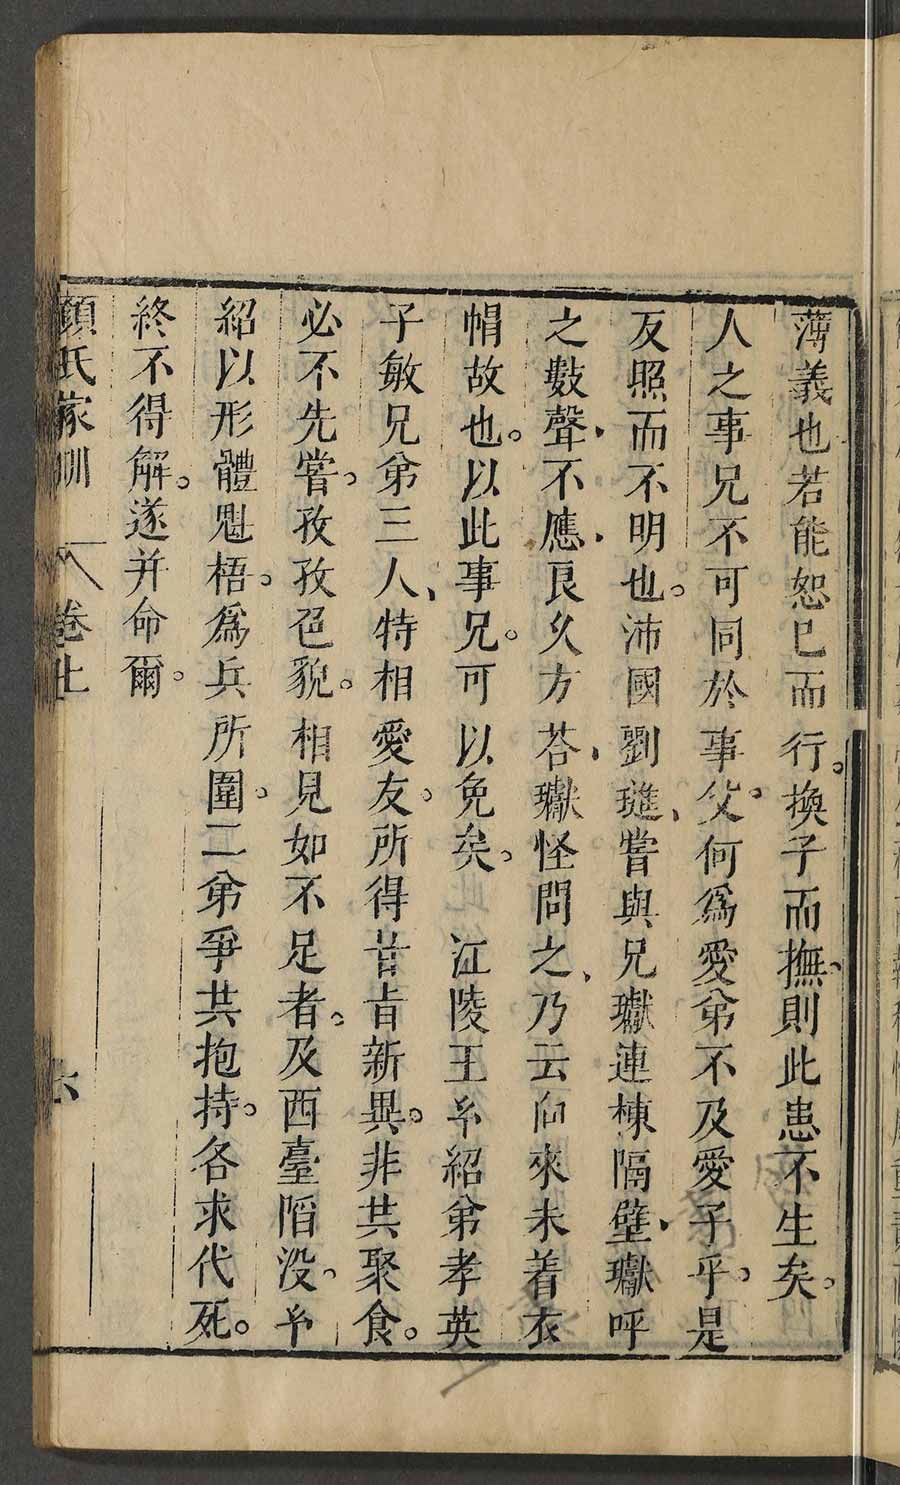 薄義也若能恕已而行。換子而撫、則此患不生矣。
人之事兄不可同於事父。何爲愛弟不及愛子乎。是
反照而不明也。沛國劉璡、嘗與兄瓛連棟隔壁、瓛呼
之數聲、不應、良久方荅、瓛怪問之、乃云向來未着衣
帽故也。以此事兄。可以免矣。 江陵王玄紹弟孝英
子敏兄弟三人、特相愛友。所得甘旨新異。非共聚食。
必不先嘗。孜孜色貌。相見如不足者。及西臺陷没、玄
紹以形體魁梧。爲兵所圍。二弟爭共抱持。各求代死。
終不得解。遂并命爾。
顏氏家訓 卷上 六